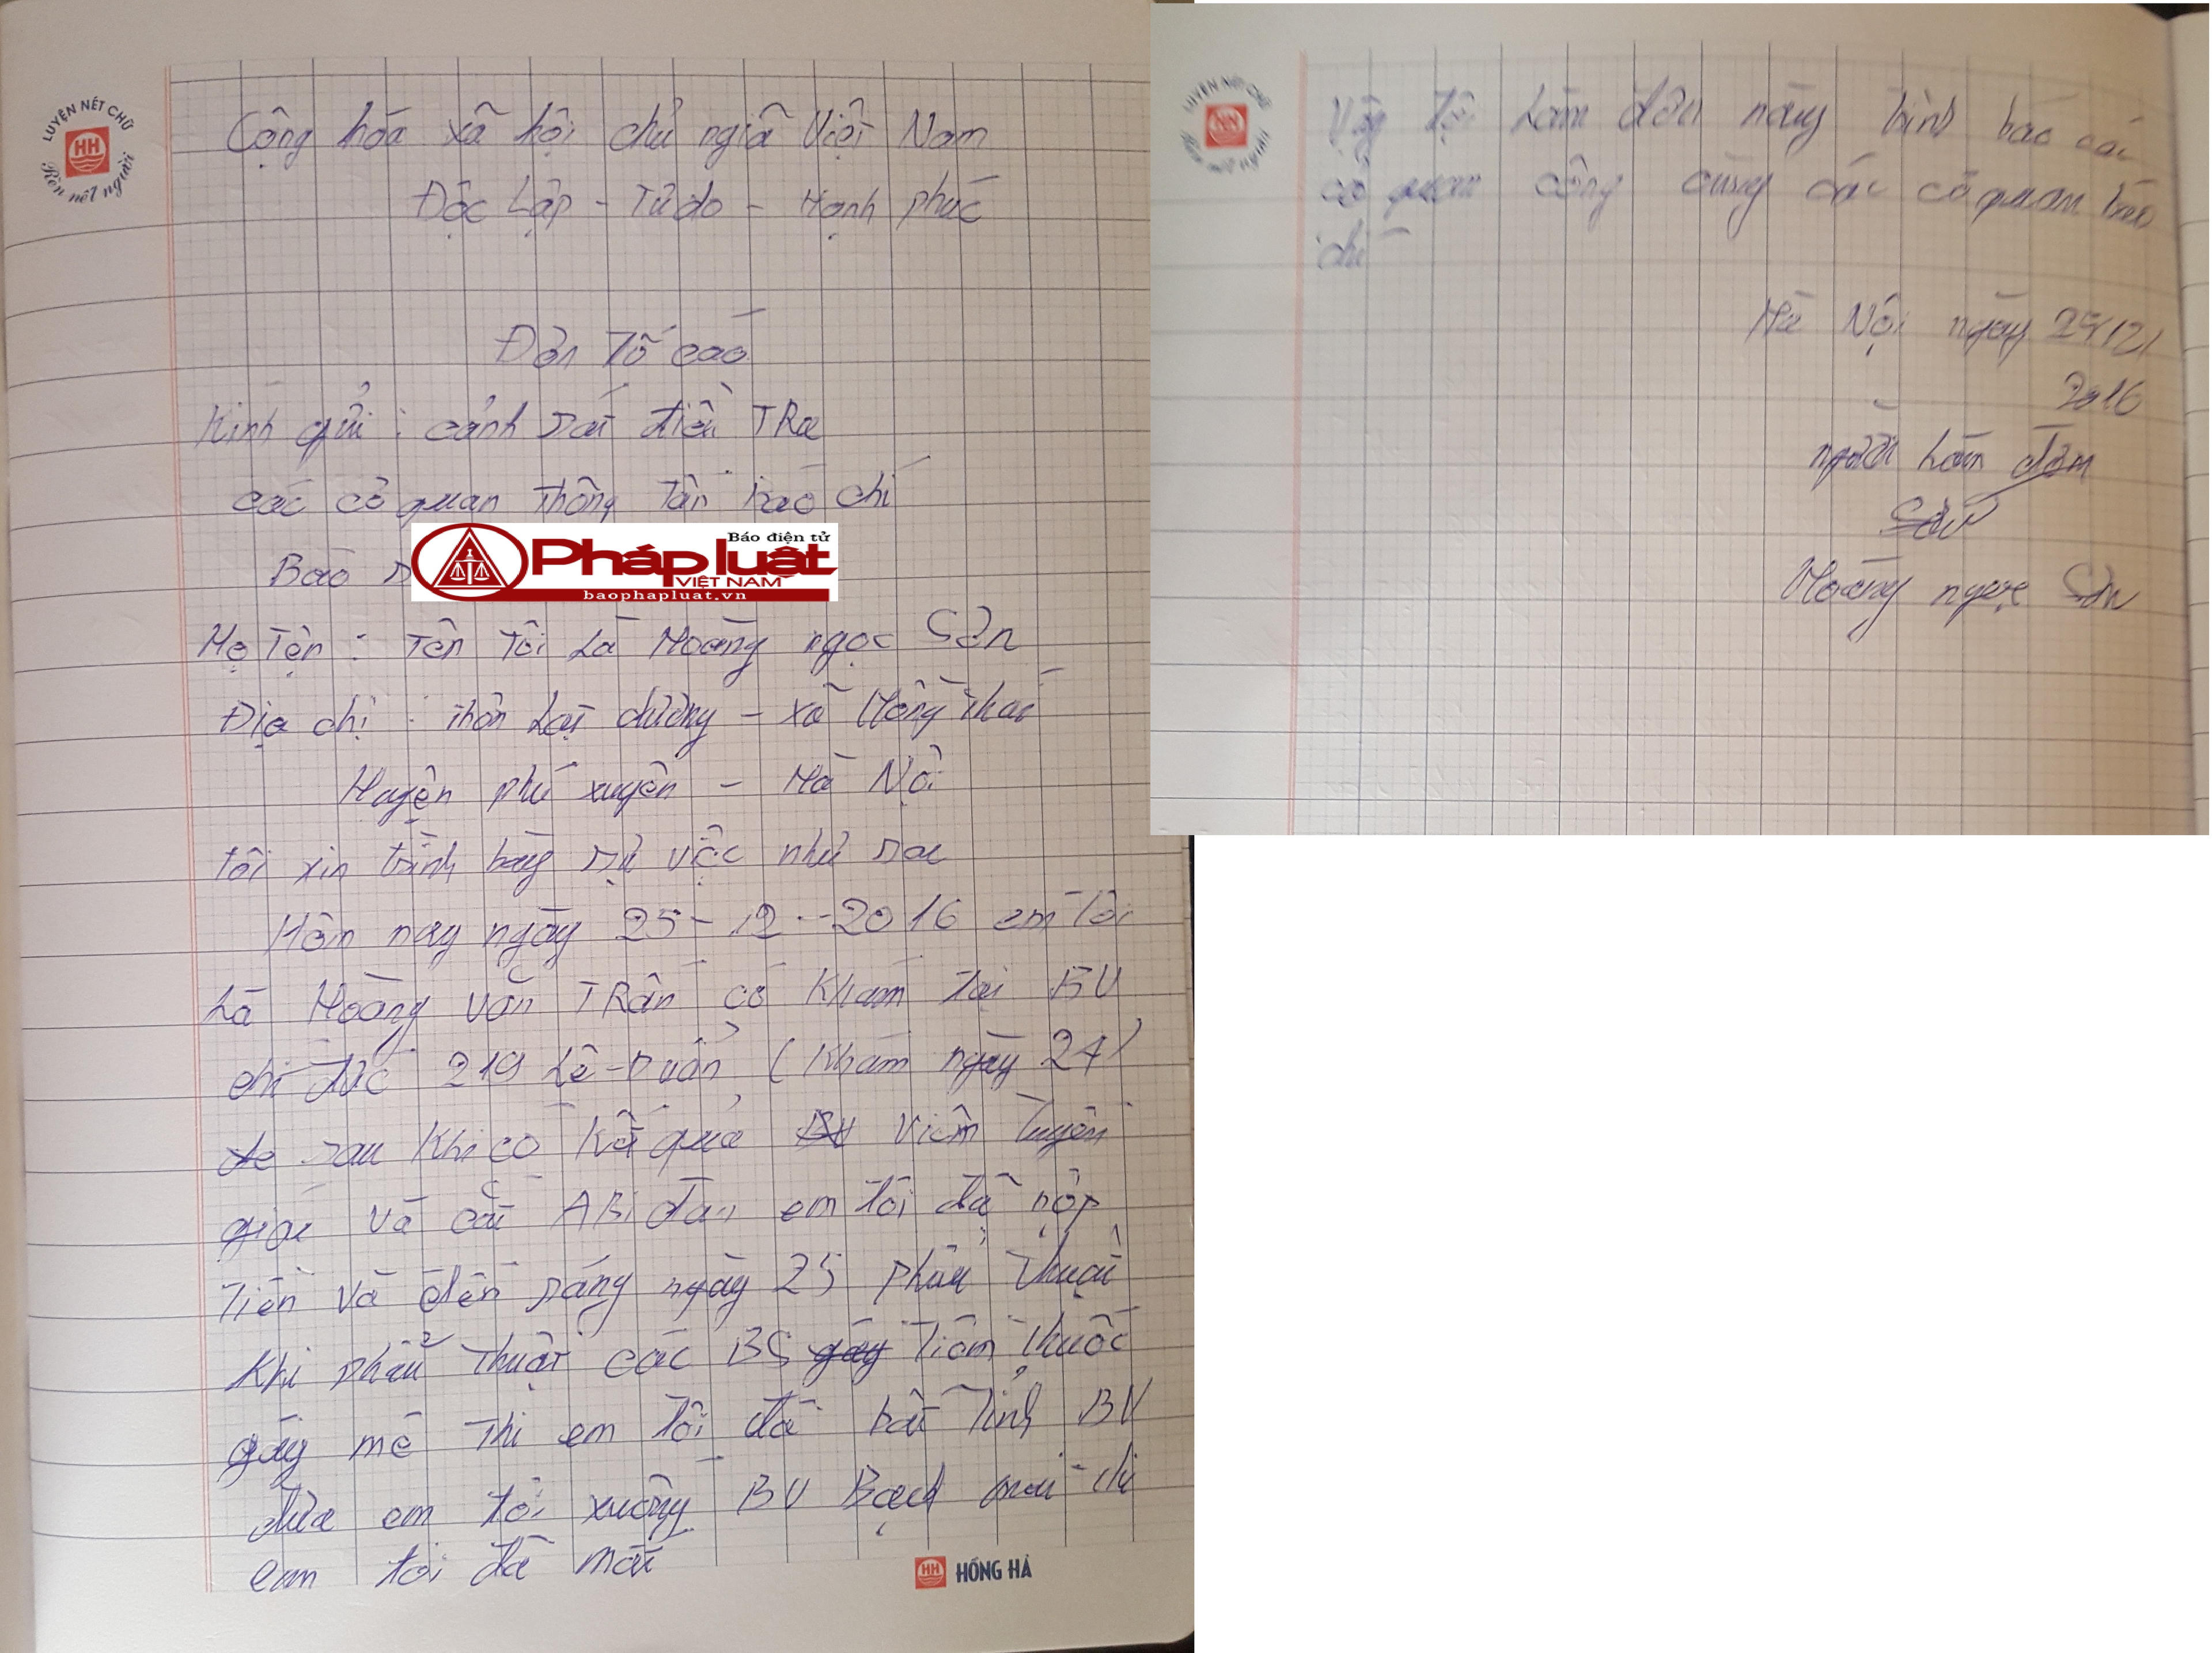 LUYỆN NÉT CHỮ
HH
Rèn nết người
Cộng hóa xã hội chủ ngiã Việt Nam
Độc Lập - Tự do - Hạnh phúc
Đơn Tố cáo
Kính gửi : cảnh sát điều TRa
các cơ quan Thông Tấn báo chí
Báo
Báo điện tử
Pháp luật
VIỆT NAM
baophapluat.vn
Họ Tên : Tên Tôi Là Hoàng ngọc Sơn
Địa chỉ : Thôn Lạt dương - xã Hồng Thái
Huyện phú xuyên - Hà Nội
tôi xin trình bày sự việc như sau
Hôm nay ngày 25-12-2016 em Tôi
Là Hoàng Văn TRấn có Khám Tại BV
chi đức 219 Lê-Duẩn (Khám ngày 24)
sau Khi có Kế quả Viêm Tuyến
giáp và cắt ABiđan em tôi đã nộp
Tiền Và đến sáng ngày 25 phẫu Thuật
Khi phẫu Thuật các BS gây Tiêm Thuốc
gây mê Thì em Tôi đã bất Tỉnh BV
đưa em tôi xuống BV Bạch mai thì
em tôi đã mất
HH HỒNG HÀ
LUYỆN NÉT CHỮ
Rèn nết người
Vậy Tôi Làm đơn nãy trình báo các
cơ quan công cùng các cơ quan báo
chí
Hà Nội ngày 25/12/
2016
người Làm đơn
Sơn
Hoàng ngọc Sơn